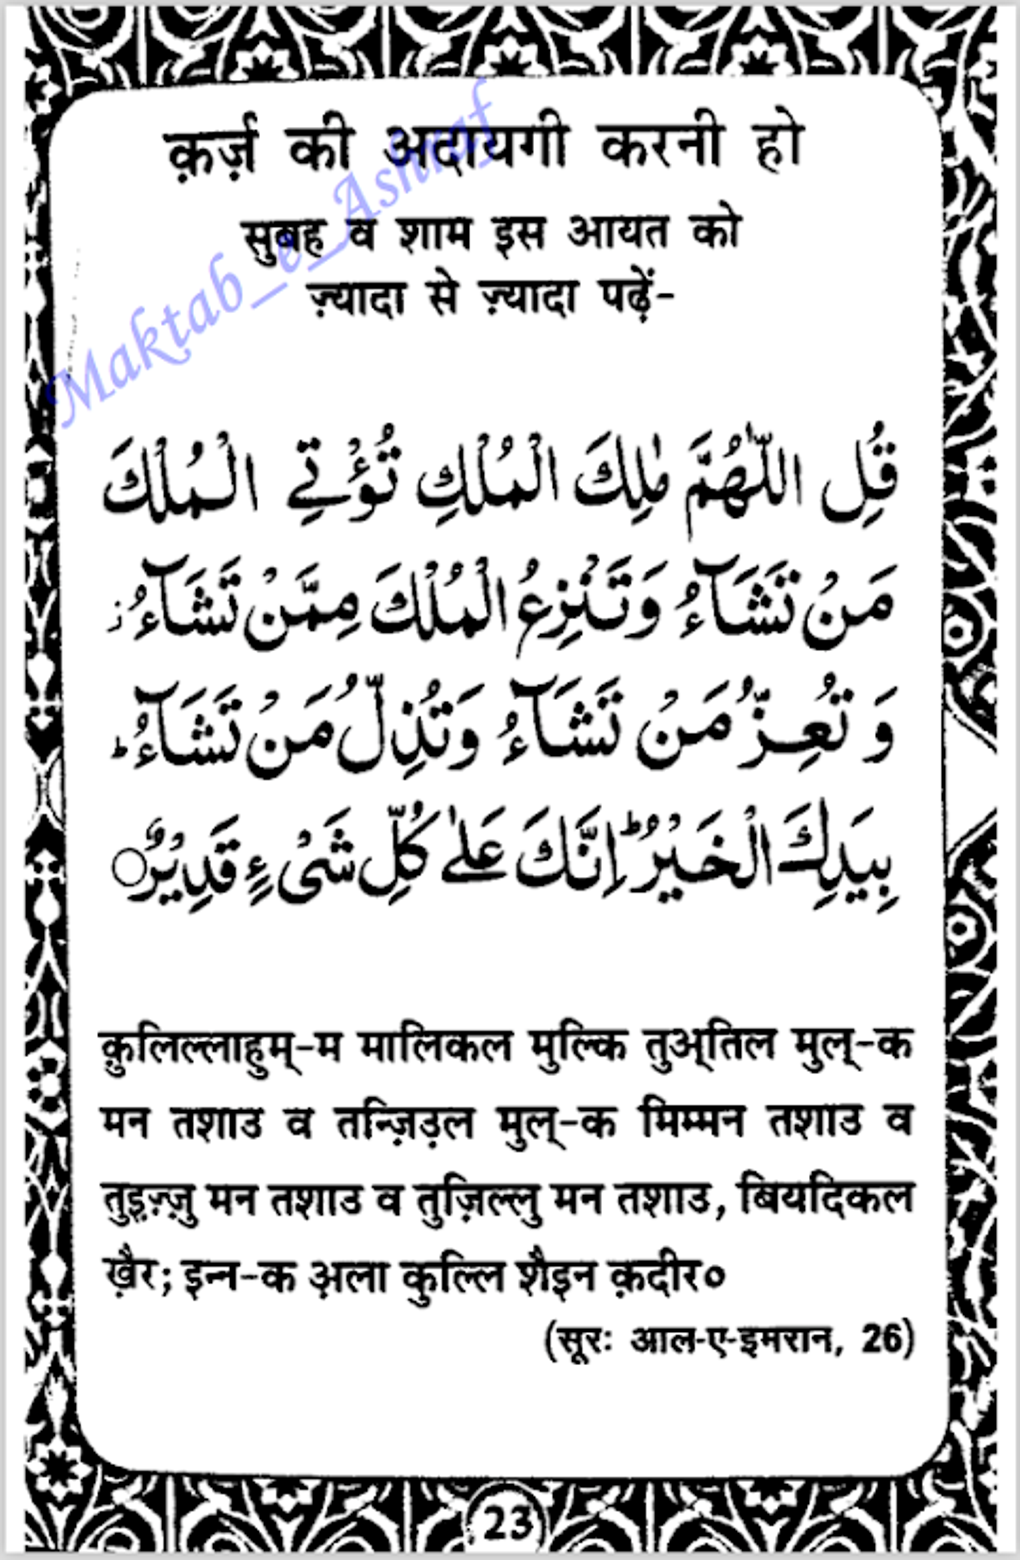 क़र्ज़ की अदायगी करनी हो
सुबह व शाम इस आयत को
ज़्यादा से ज़्यादा पढ़ें-
Maktab_e_Ashraf
قُلِ اللّٰهُمَّ مٰلِكَ الْمُلْكِ تُؤْتِے الْمُلْكَ
مَنْ تَشَآءُ وَتَنْزِعُ الْمُلْكَ مِمَّنْ تَشَآءُ ز
وَ تُعِزُّ مَنْ تَشَآءُ وَتُذِلُّ مَنْ تَشَآءُ ط
بِيَدِكَ الْخَيْرُ ط اِنَّكَ عَلٰے كُلِّ شَیْءٍ قَدِيْرٌ○
क़ुलिल्लाहुम्-म मालिकल मुल्कि तुअ्तिल मुल्-क
मन तशाउ व तन्ज़िउ़ल मुल्-क मिम्मन तशाउ व
तुइ़ज़्ज़ु मन तशाउ व तुज़िल्लु मन तशाउ, बियदिकल
ख़ैर; इन्न-क अ़ला कुल्लि शैइन क़दीर०
(सूरः आल-ए-इमरान, 26)
23